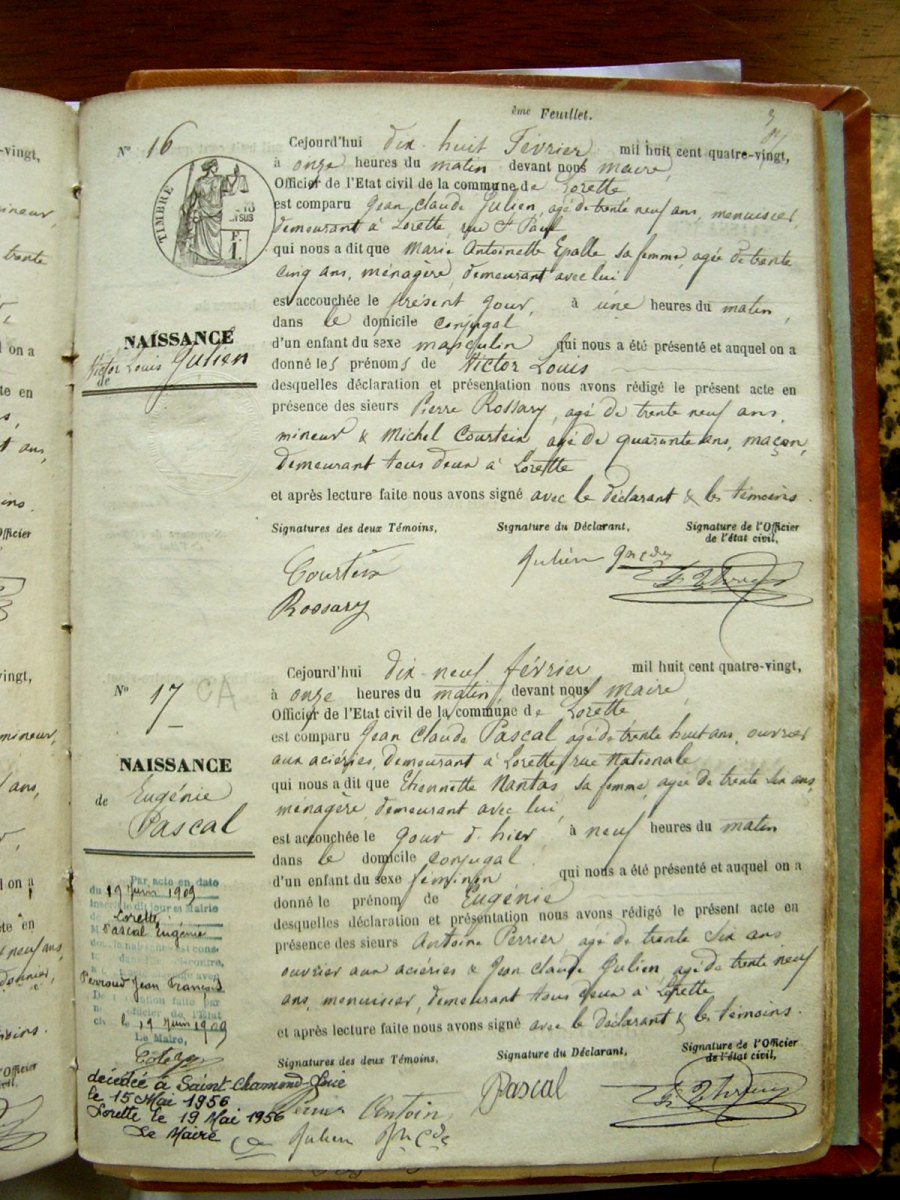 ème Feuillet.
N° 16
Cejourd'hui dix-huit Février mil huit cent quatre-vingt,
à onze heures du matin devant nous maire,
Officier de l'Etat civil de la commune de Lorette
est comparu Jean Claude Julien, agé de trente neuf ans, menuisier
demeurant à Lorette, rue St Paul
qui nous a dit que Marie Antoinette Epalle sa femme, agée de trente
cinq ans, ménagère, demeurant avec lui
est accouchée le présent jour, à une heures du matin,
dans le domicile conjugal
d'un enfant du sexe masculin qui nous a été présenté et auquel on a
donné les prénoms de Victor Louis
desquelles déclaration et présentation nous avons rédigé le présent acte en
présence des sieurs Pierre Rossary, agé de trente neuf ans,
mineur & Michel Courtein agé de quarante ans, maçon,
demeurant tous deux à Lorette
et après lecture faite nous avons signé avec le déclarant & les témoins.
TIMBRE
NAISSANCE
de Victor Louis Julien
Signatures des deux Témoins,
Signature du Déclarant,
Signature de l'Officier
de l'état civil,
Rossary
Julien
N° 17
Cejourd'hui dix-neuf février mil huit cent quatre-vingt,
à onze heures du matin, devant nous maire,
Officier de l'Etat civil de la commune de Lorette
est comparu Jean Claude Pascal agé de trente huit ans, ouvrier
aux aciéries, demeurant à Lorette, rue Nationale
qui nous a dit que Etiennette Nantas sa femme, agée de trente six ans,
ménagère, demeurant avec lui,
est accouchée le jour d'hier, à neuf heures du matin
dans le domicile conjugal
d'un enfant du sexe féminin qui nous a été présenté et auquel on a
donné le prénom de Eugénie
desquelles déclaration et présentation nous avons rédigé le présent acte en
présence des sieurs Antoine Perrier agé de trente six ans
ouvrier aux aciéries & Jean Claude Julien, agé de trente neuf
ans, menuisier, demeurant tous deux à Lorette
et après lecture faite nous avons signé avec le déclarant & les témoins.
NAISSANCE
de Eugénie
Pascal
Par acte en date
du 19 Juin 1909
Lorette
Pascal Eugénie
Perroud Jean François
le 19 Juin 1909
Le Maire,
décédée à Saint-Chamond-Loire
le 15 Mai 1956
Lorette le 19 Mai 1956
Le Maire
Signatures des deux Témoins,
Signature du Déclarant,
Signature de l'Officier
de l'état civil,
Pascal
Julien